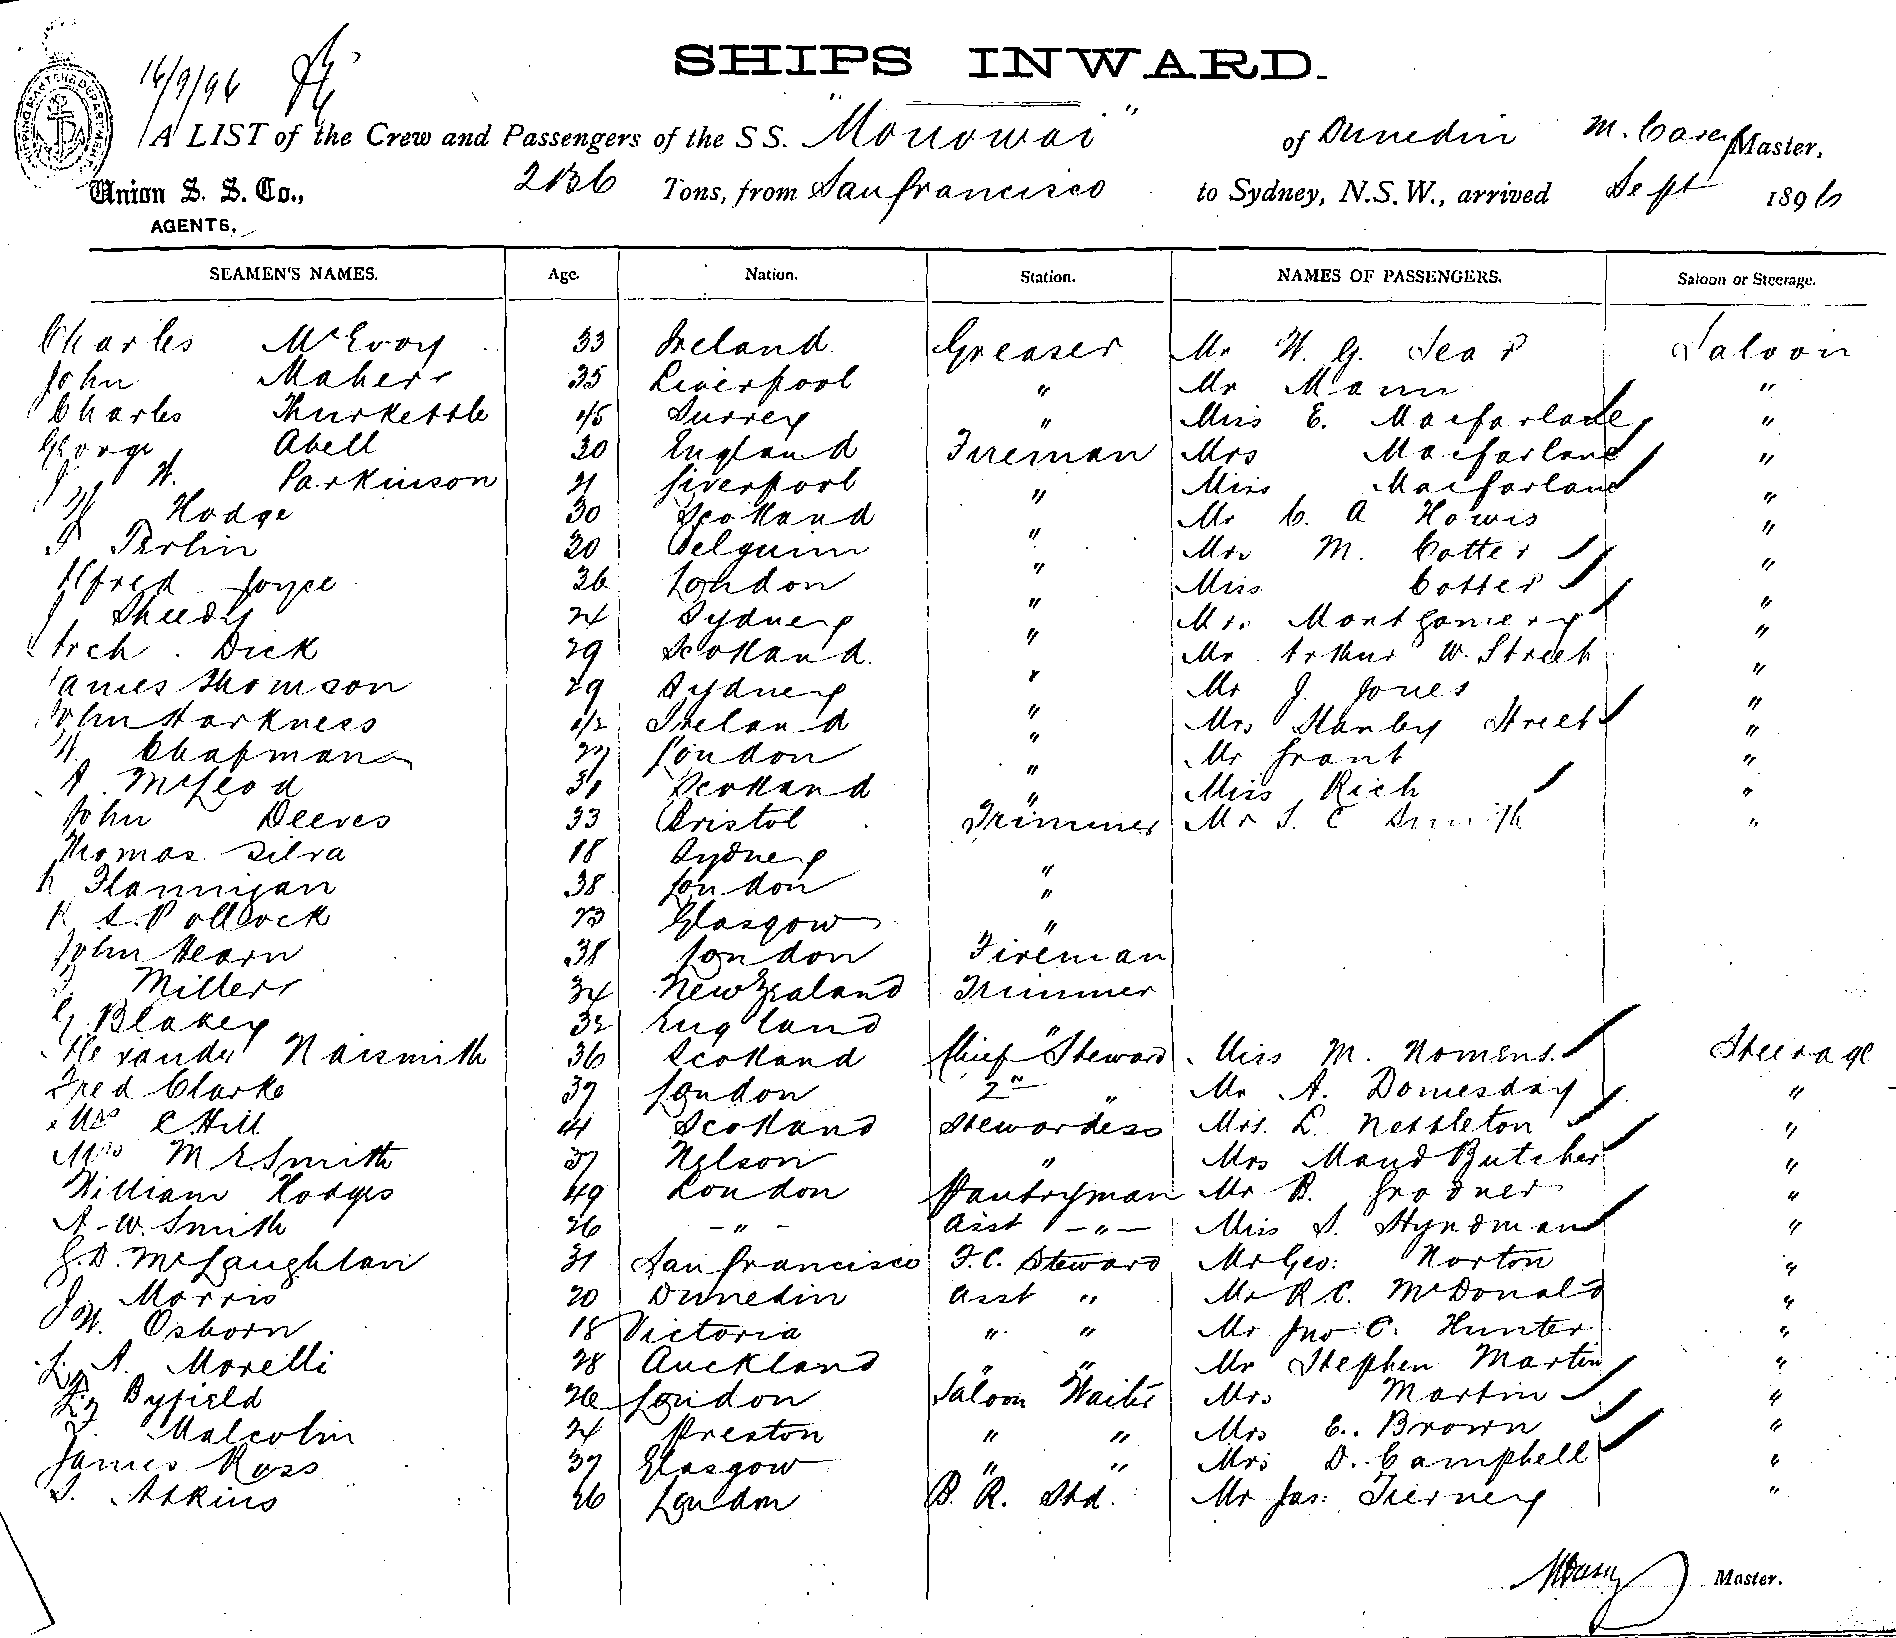 SHIPS INWARD.
16/9/96
A LIST of the Crew and Passengers of the S S. "Monowai" of Dunedin M. Carey Master,
Union S. S. Co., 2136 Tons, from San Francisco to Sydney, N.S.W., arrived Sept 1896
AGENTS,
SEAMEN'S NAMES. Age. Nation. Station. NAMES OF PASSENGERS. Saloon or Steerage.
Charles McEvoy 33 Ireland Greaser Mr W. G. Saloon
John Maher 35 Liverpool " Mr Mann "
Charles Thurkettle 45 Surrey " Miss E. Macfarlane "
George Abell 30 England Fireman Mrs Macfarlane "
J W. Parkinson 21 Liverpool " Miss Macfarlane "
Hodge 30 Scotland " Mr C. A Howis "
Perlin 20 Belguim " Mrs M. Cotter "
Alfred Joyce 36 London " Miss Cotter "
J Sheedy 24 Sydney " Mrs Montgomery "
Arch. Dick 29 Scotland " Mr Arthur W. Street "
James Thomson 29 Sydney " Mr J. Jones "
John Harkness 42 Ireland " Mrs Stanley Street "
W. Chapman 27 London " Mr Grant "
A. McLeod 31 Scotland " Miss Rich "
John Deeves 33 Bristol Trimmer Mr S. C Smith "
Thomas Silva 18 Sydney "
Flannigan 38 London "
R A. Pollock 23 Glasgow "
John Hearn 38 London Fireman
Miller 34 New Zealand Trimmer
G. Blakey 32 England "
Alexander Naismith 36 Scotland Chief Steward Miss M. Nomens. Steerage
Fred Clarke 37 London 2nd " Mr A. Domesday "
Mrs C Hill 41 Scotland Stewardess Mrs. L. Nettleton "
Mrs M E Smith 37 Nelson " Mrs Maud Butcher "
William Hodges 49 London Pantryman Mr B. Grodner "
A. W. Smith 26 - " - Asst - " - Miss S. Hyndman "
G. D. McLaughlan 31 San Francisco F. C. Steward Mr Geo: Norton "
J. Morris 20 Dunedin Asst " Mr R. C. McDonald "
J W. Osborn 18 Victoria " " Mr Jno C. Hunter "
L. A. Morelli 28 Auckland " " Mr Stephen Martin "
Byfield 26 London Saloon Waiter Mrs Martin "
Malcolm 24 Preston " " Mrs E. Brown "
James Ross 37 Glasgow " " Mrs D. Campbell "
S. Atkins 26 London B. R. Std. Mr Jas: Tierney "
Master.